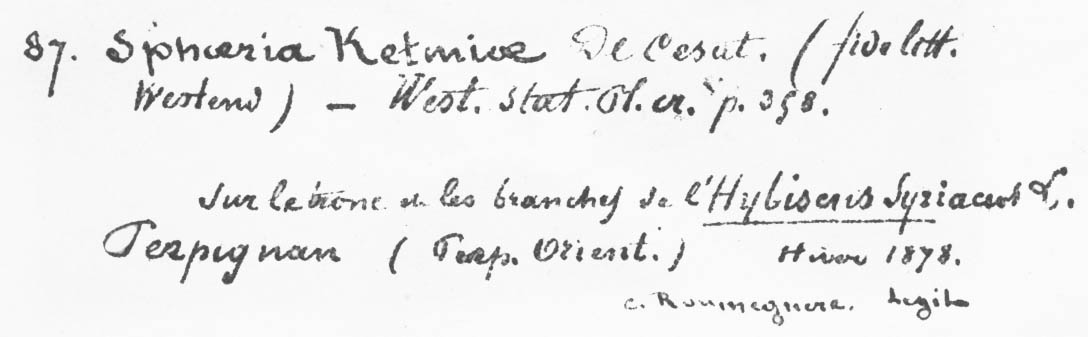 87. Sphæria Ketmiæ De Cesat. (fide litt.
Westend) — West. Stat. Pl. cr. p. 358.
sur le tronc et les branches de l'Hybiscus Syriacus L.
Perpignan ( Orient.) Hiver 1878.
C. Roumeguere. Legit